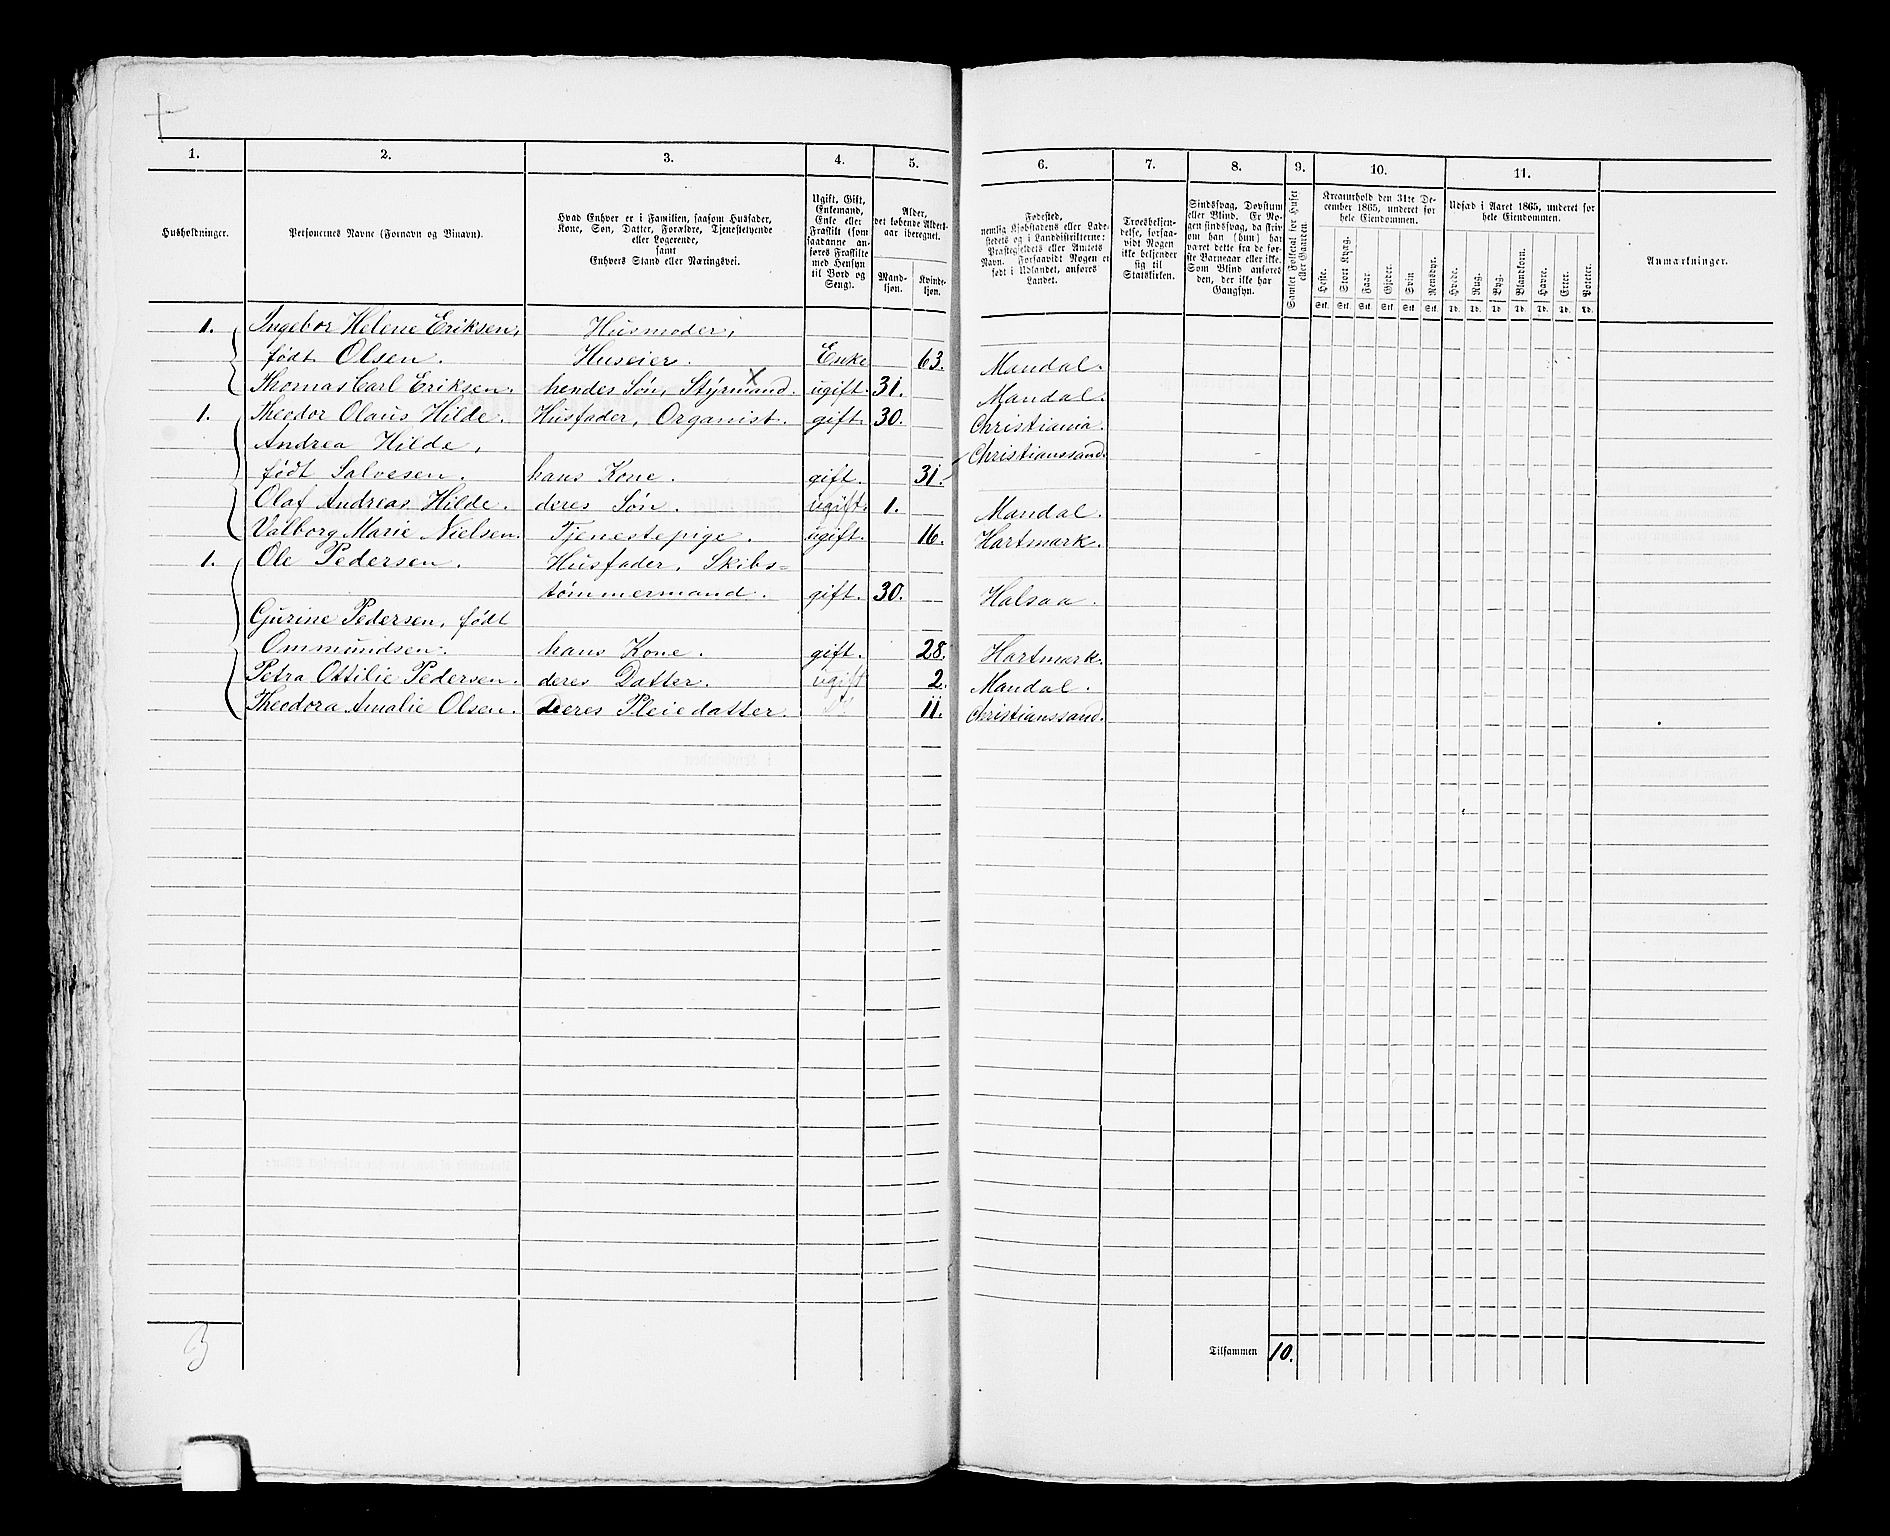 1. 2. 3. 4. 5. 6. 7. 8. 9. 10. 11.
Husholdninger.
Personernes Navne (Fornavn og Binavn).
Hvad Enhver er i Familien, saasom Husfader,
Kone, Søn, Datter, Forældre, Tjenestetyende
eller Logerende,
samt
Enhvers Stand eller Næringsvei.
Ugift, Gift,
Enkemand,
Enke eller
Fraskilt (som
saadanne an-
føres Fraskilte
med Hensyn
til Bord og
Seng).
Alder,
det løbende Alders-
aar iberegnet.
Mand-
kjøn.
Kvinde-
kjøn.
Fødested,
nemlig Kjøbstadens eller Lade-
stedets og i Landdistrikterne:
Præstegjeldets eller Amtets
Navn. Forsaavidt Nogen er
født i Udlandet, anføres
Landet.
Troesbekjen-
delse, forsaa-
vidt Nogen
ikke bekjender
sig til
Statskirken.
Sindssvag, Døvstum
eller Blind. Er No-
gen sindssvag, da hvorvidt
han (hun) har
været dette fra de før-
ste Barneaar eller ikke.
Som Blind anføres
den, der ikke har
Gangsyn.
Samlet Folketal for Huset
eller Gaarden.
Kreaturhold den 31te De-
cember 1865, underet for
hele Eiendommen.
Heste. Stort Kvæg. Faar. Gjeder. Svin Rensdyr.
Stk. Stk. Stk. Stk. Stk. Stk.
Udsæd i Aaret 1865, underet for
hele Eiendommen.
Hvede. Rug. Byg. Blandkorn. Havre. Erter. Poteter.
Td. Td. Td. Td. Td. Td. Td.
Anmærkninger.
1. Ingebor Helene Eriksen, Husmoder,
født Olsen. Huseier. Enke 63. Mandal.
Thomas Carl Eriksen. hendes Søn, Styrmand. ugift. 31. Mandal.
1. Theodor Olaus Hilde. Husfader, Organist. gift. 30. Christiania.
Andrea Hilde, Christianssand.
født Salvesen. hans Kone. gift. 31.
Olaf Andreas Hilde. deres Søn. ugift. 1. Mandal.
Valborg Marie Nielsen. Tjenestepige. ugift. 16. Hartmark.
1. Ole Pedersen. Husfader, Skibs=
tømmermand. gift. 30. Halsaa.
Gurine Pedersen, født
Ommundsen. hans Kone. gift. 28. Hartmark.
Petra Ottilie Pedersen. deres Datter. ugift 2. Mandal.
Theodora Amalie Olsen. Deres Pleiedatter. 11. Christianssand.
3
Tilsammen 10.